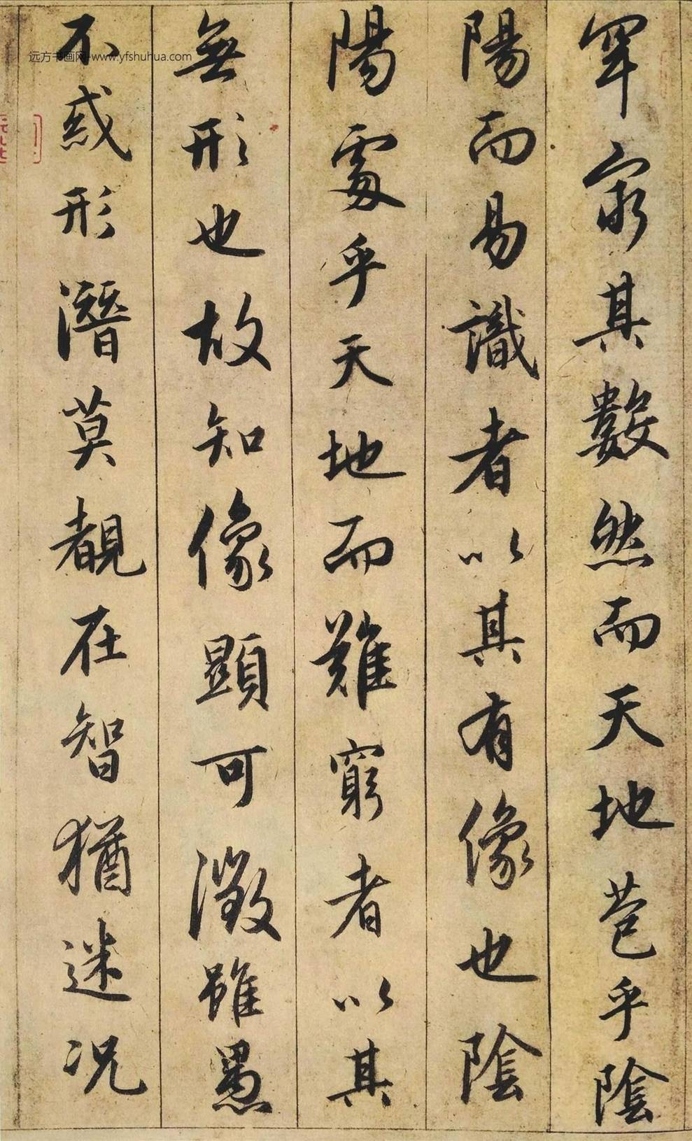 罕窮其數然而天地苞乎陰
陽而易識者以其有像也陰
陽處乎天地而難窮者以其
無形也故知像顯可徵雖愚
不惑形潛莫覩在智猶迷況
远方书画网-www.yfshuhua.com